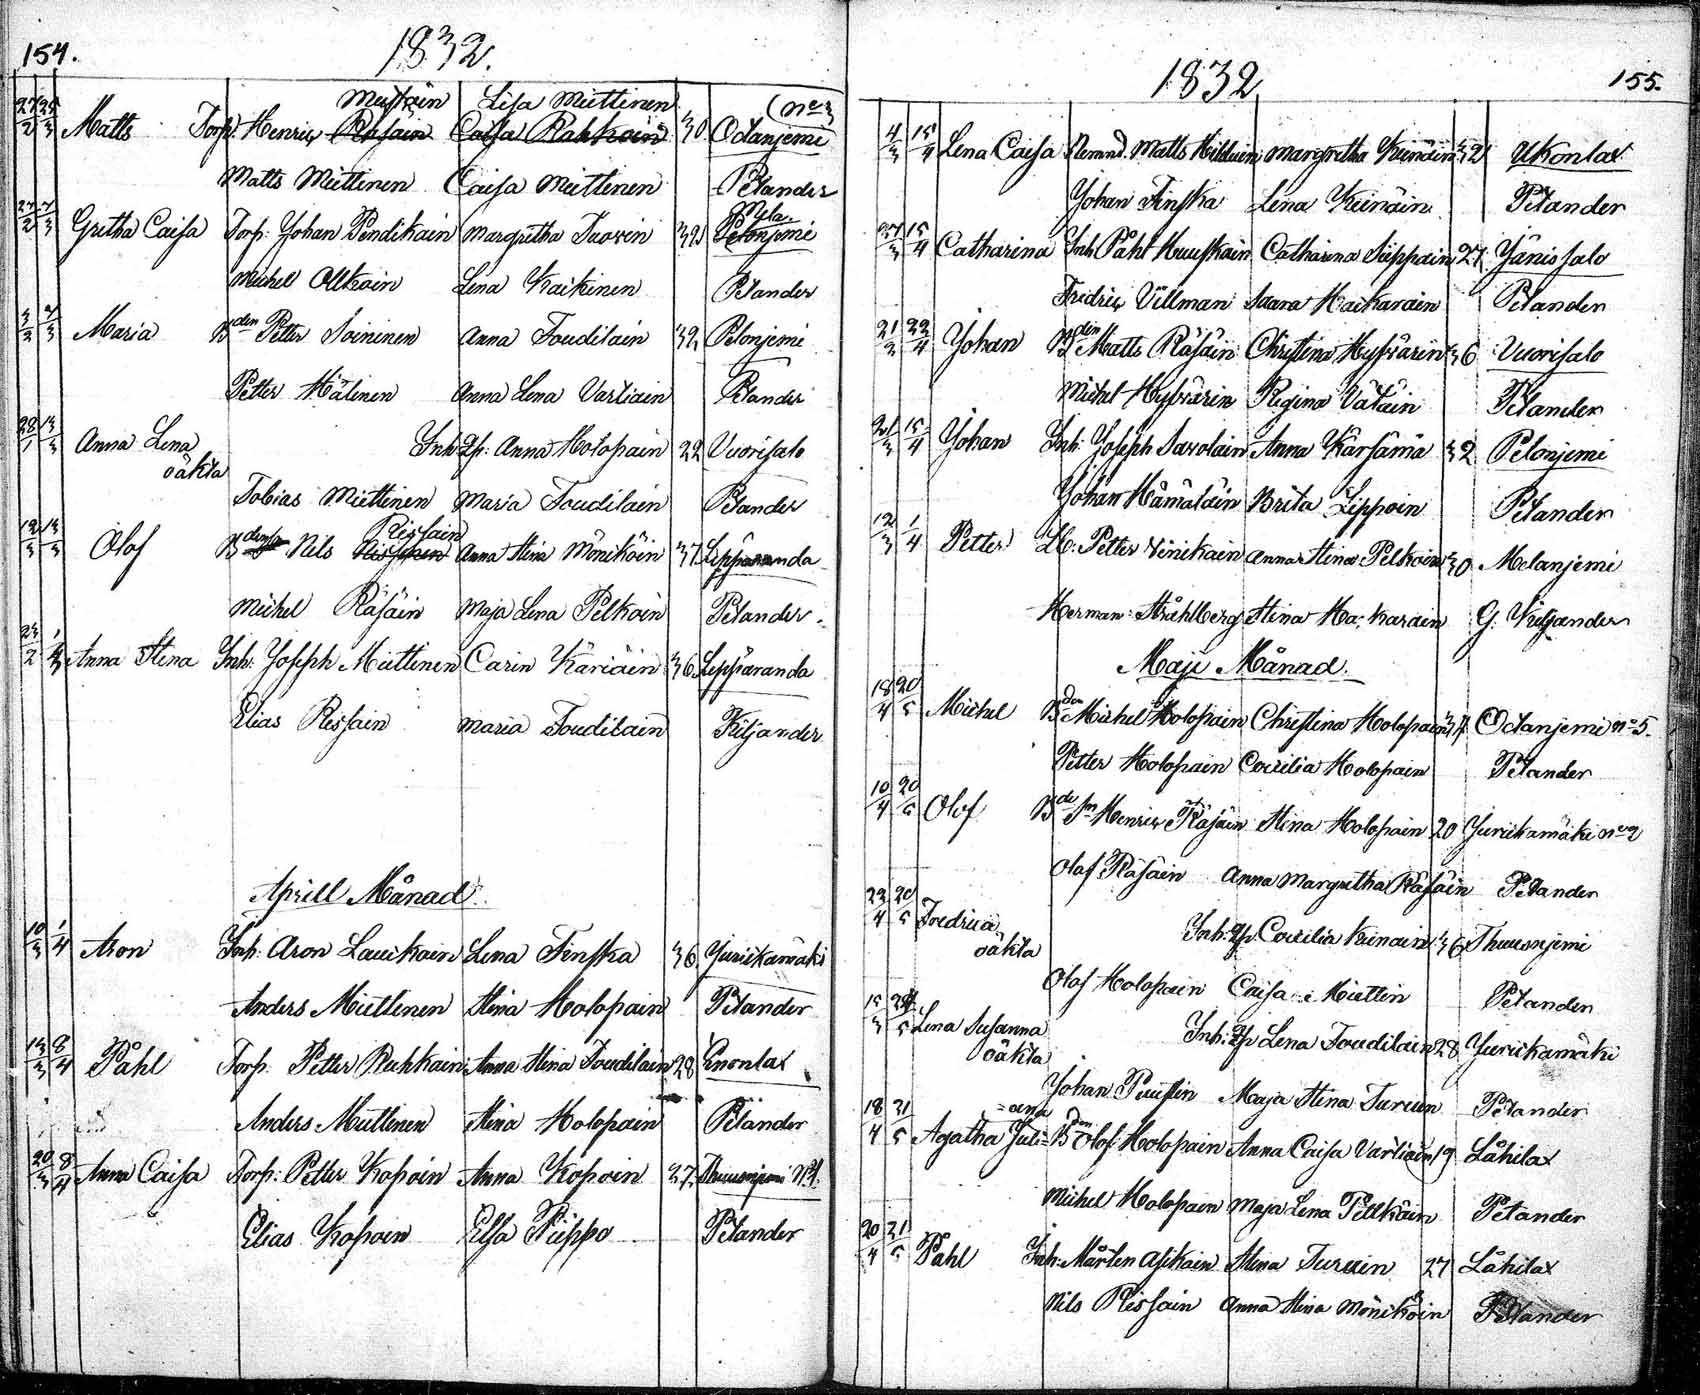 154.
1832.
Miettin Lisa Miettinen (No 3
27/2 25/3 Matts Torp. Henric Räsäin Caisa Rahkoin 30 Otanjemi
Matts Miettinen Caisa Miettinen Petander
Mela.
27/2 7/3 Gretha Caisa Torp: Johan Pendikäin Margretha Tuovin 32 Pelonjemi
Michel Olkoin Lena Kaikinen Petander
3/2 7/3 Maria Bden Petter Soininen Anna Toudilain 32 Pelonjemi
Petter Hälinen Anna Lena Vartiain Petander
28/1 13/3 Anna Lena Inh. Qp: Anna Holopain 22 Vuorisalo
oäkta
Tobias Miettinen Maria Toudilain Petander
Reissain
12/3 13/3 Olof Nils Anna Stina Möniköin 37 Leppäranda
Michel Räsäin Maja Lena Pelkoin Petander.
23/2 Anna Stina Inh: Joseph Miettinen Carin Käriäin 36 Leppäranda
Elias Reissain Maria Toudilain Kiljander
Aprill Månad.
10/3 1/4 Aron Inh: Aron Lauckain Lena Finska 36 Jurickamäki
Anders Miettinen Stina Holopain Petander
13/3 8/4 Påhl Torp. Petter Ruhkain Anna Stina Toudilain 28 Enonlax
Anders Miettinen Stina Holopain Petander
20/3 8/4 Anna Caisa Torp: Petter Kopoin Anna Kopoin 27. Thuusnjemi No 4.
Elias Kopoin Elsa Pieppo Petander
1832
155.
4/3 15/4 Lena Caisa Nemnd. Matts Hilduin Margretha Keinäin 32 Ukonlax
Johan Finska Lena Keinäin Petander
15/4 Catharina Inh Påhl Huuskoin Catharina Sieppäin 27 Jänissalo
Fredric Villman Saara Haikarain Petander
21/3 22/4 Johan Bden Matts Räsäin Christina Hyfvärin 36 Vuorisalo
Michel Hyfvärin Regina Vätäin Petander
21/3 15/4 Johan Inh: Joseph Savolain Anna Kärsämä 32 Pelonjemi
Johan Hämäläin Brita Lippoin Petander
12/3 1/4 Petter Petter Vinikain Anna Stina Pelkoin 30 Melanjemi
Herman: Stråhlberg Stina Ha: karain G. Kiljander
Maji Månad.
18/4 20/5 Michel Bden Michel Holopain Christina Holopain 34 Otanjemi No 5.
Petter Holopain Cecilia Holopain Petander
10/4 20/5 Olof Bde Sn Henric Räsäin Stina Holopain 20 Jurickamäki No 2
Olof Räsäin Anna Margretha Räsäin Petander
22/4 20/5 Fredrica Inh: Qp Cecilia Keinäin 36 Thuusnjemi
oäkta
Olof Holopain Caisa Miettin Petander
15/3 Lena Susanna Inh: Qp Lena Toudilain 28 Jurickamäki
oäkta
Johan Puustin Maja Stina Turuen Petander
=ana
18/4 31/5 Agatha Juli= Bden Olof Holopain Anna Caisa Vartiain 19 Lähilax
Michel Holopain Maja Lena Pellkäin Petander
20/4 21/5 Påhl Inh: Mårten Asikain Stina Turuin 27 Lähilax
Nils Reissain Anna Stina Möniköin Petander